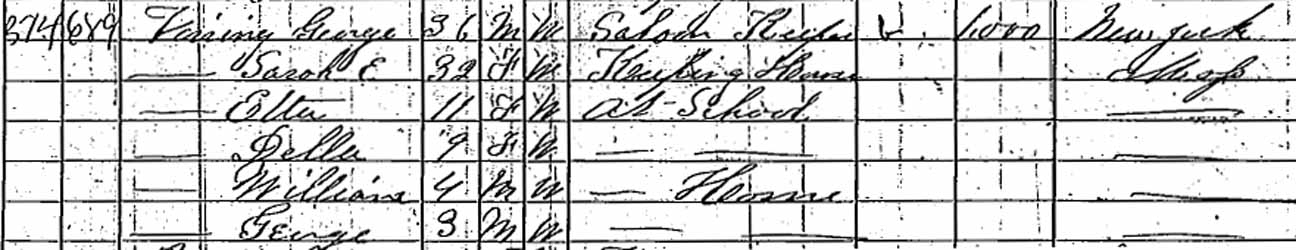 374 689 Vining George 36 M W Saloon Keeper 1,000 New york
— Sarah E 32 F W Keeping House Mass
— Etta 11 F W At School —
— Della 9 F W — — —
— William 4 M W — Home —
— George 3 M W — — —